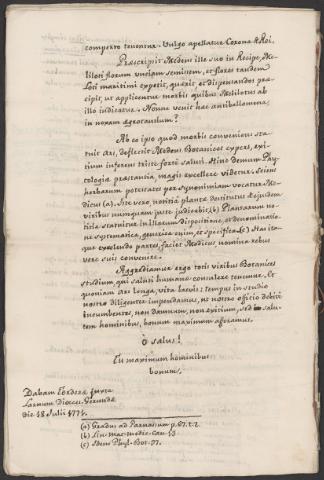 comperto tenentur. Vulgo apellatur Corona de Rei.
Præscripsit Medens ille suo in Recipe, Me-
liloti florum unciam semissem, et flores tandem
Loti maritimi expetit, quærit et dispensandos præ-
cipit, ut applicentur morbis quibus Melilotus ab
illo indicatur. Nonne venit hæc antiballomena,
in noxam ægrotantum?
Ab eo ipso quod morbis conveniens sta-
tuit Ars, deflectit Medens Botanices expers, exi-
tium inferens triste forte saluti. Hinc demum Phy-
tologiæ præstantia, magis excellere videtur. Sciens
herbarum potestates per synonimiam vocatur Me-
dicus (a). Iste vero, notitia plantæ destitutus ejusdem
viribus numquam juste judicabit (b) Plantarum no-
titia statuitur in illarum dispositione, et denominatio-
ne systematica, generica enim, et specifica (c) Has ita-
que excolendo partes, faciet Medicus, nomina rebus
vere suis convenire.
Aggrediamur ergo totis viribus Botanices
studium, qui saluti humanæ consulere tenemur. Et
quoniam ars longa, vita brevis; tempus in studio
nostro diligenter impendamus, ut nostro officio debite
incumbentes, non damnum, non exitium, sed salu-
tem hominibus, bonum maximum aferamus.
O salus!
Tu maximum hominibus
bonum.
Dabam Tordera juxta
Larnum Diocesi Gerundæ
die 18 Julii 1771.
(a) Gradus ad Parnasum p. 67. t. 2.
(b) Lin. mat. medic. Can. 13
(c) Idem Phyl. Bot. 97.